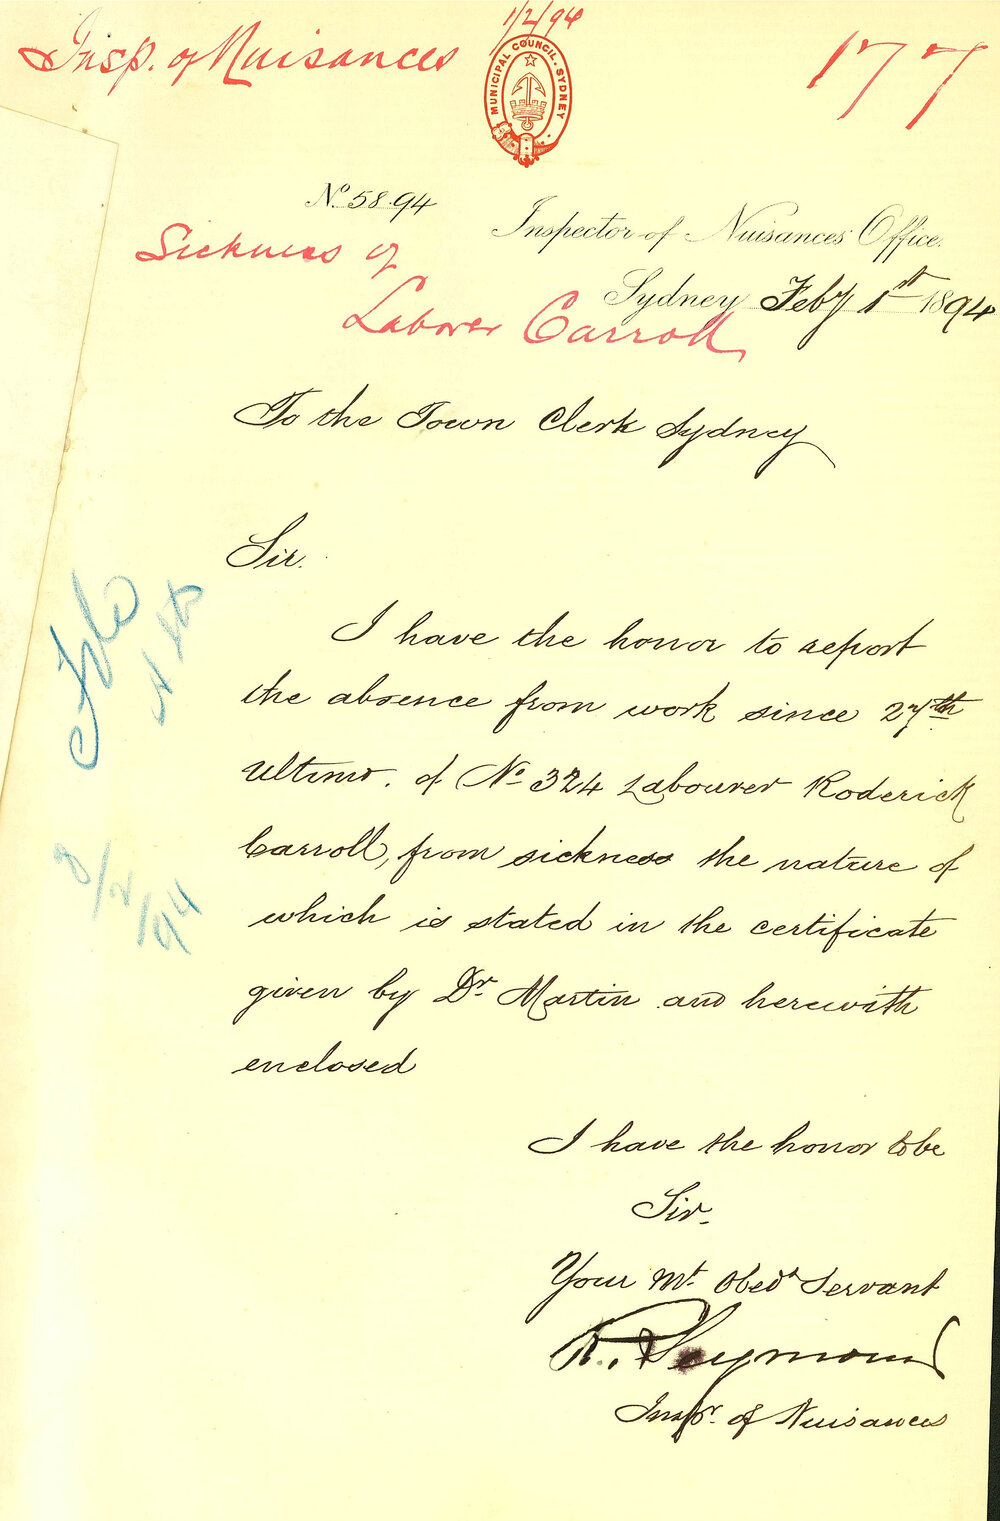 1/2/94
Insp. of Nuisances
177
MUNICIPAL COUNCIL. SYDNEY
No 58.94
Inspector of Nuisances Office.
Sickness of
Sydney Feby 1st 1894
Laborer Carroll
To the Town Clerk Sydney
Sir.
I have the honor to report
the absence from work since 27th
Ultimo. of No 324 Labourer Roderick
Carroll, from sickness the nature of
which is stated in the certificate
given by Dr Martin and herewith
enclosed
File
8/2/94
I have the honor to be
Sir.
Your Mt. Obedt Servant
R. Seymour
Inspr. of Nuisances